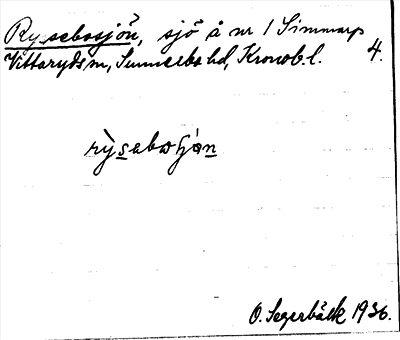 Rysebosjön, sjö å nr 1 Simmarp
Vittaryds sn, Sunnerbo hd, Kronob. l. 4.
rỳseboʃɧòn
O. Segerbäck 1936.